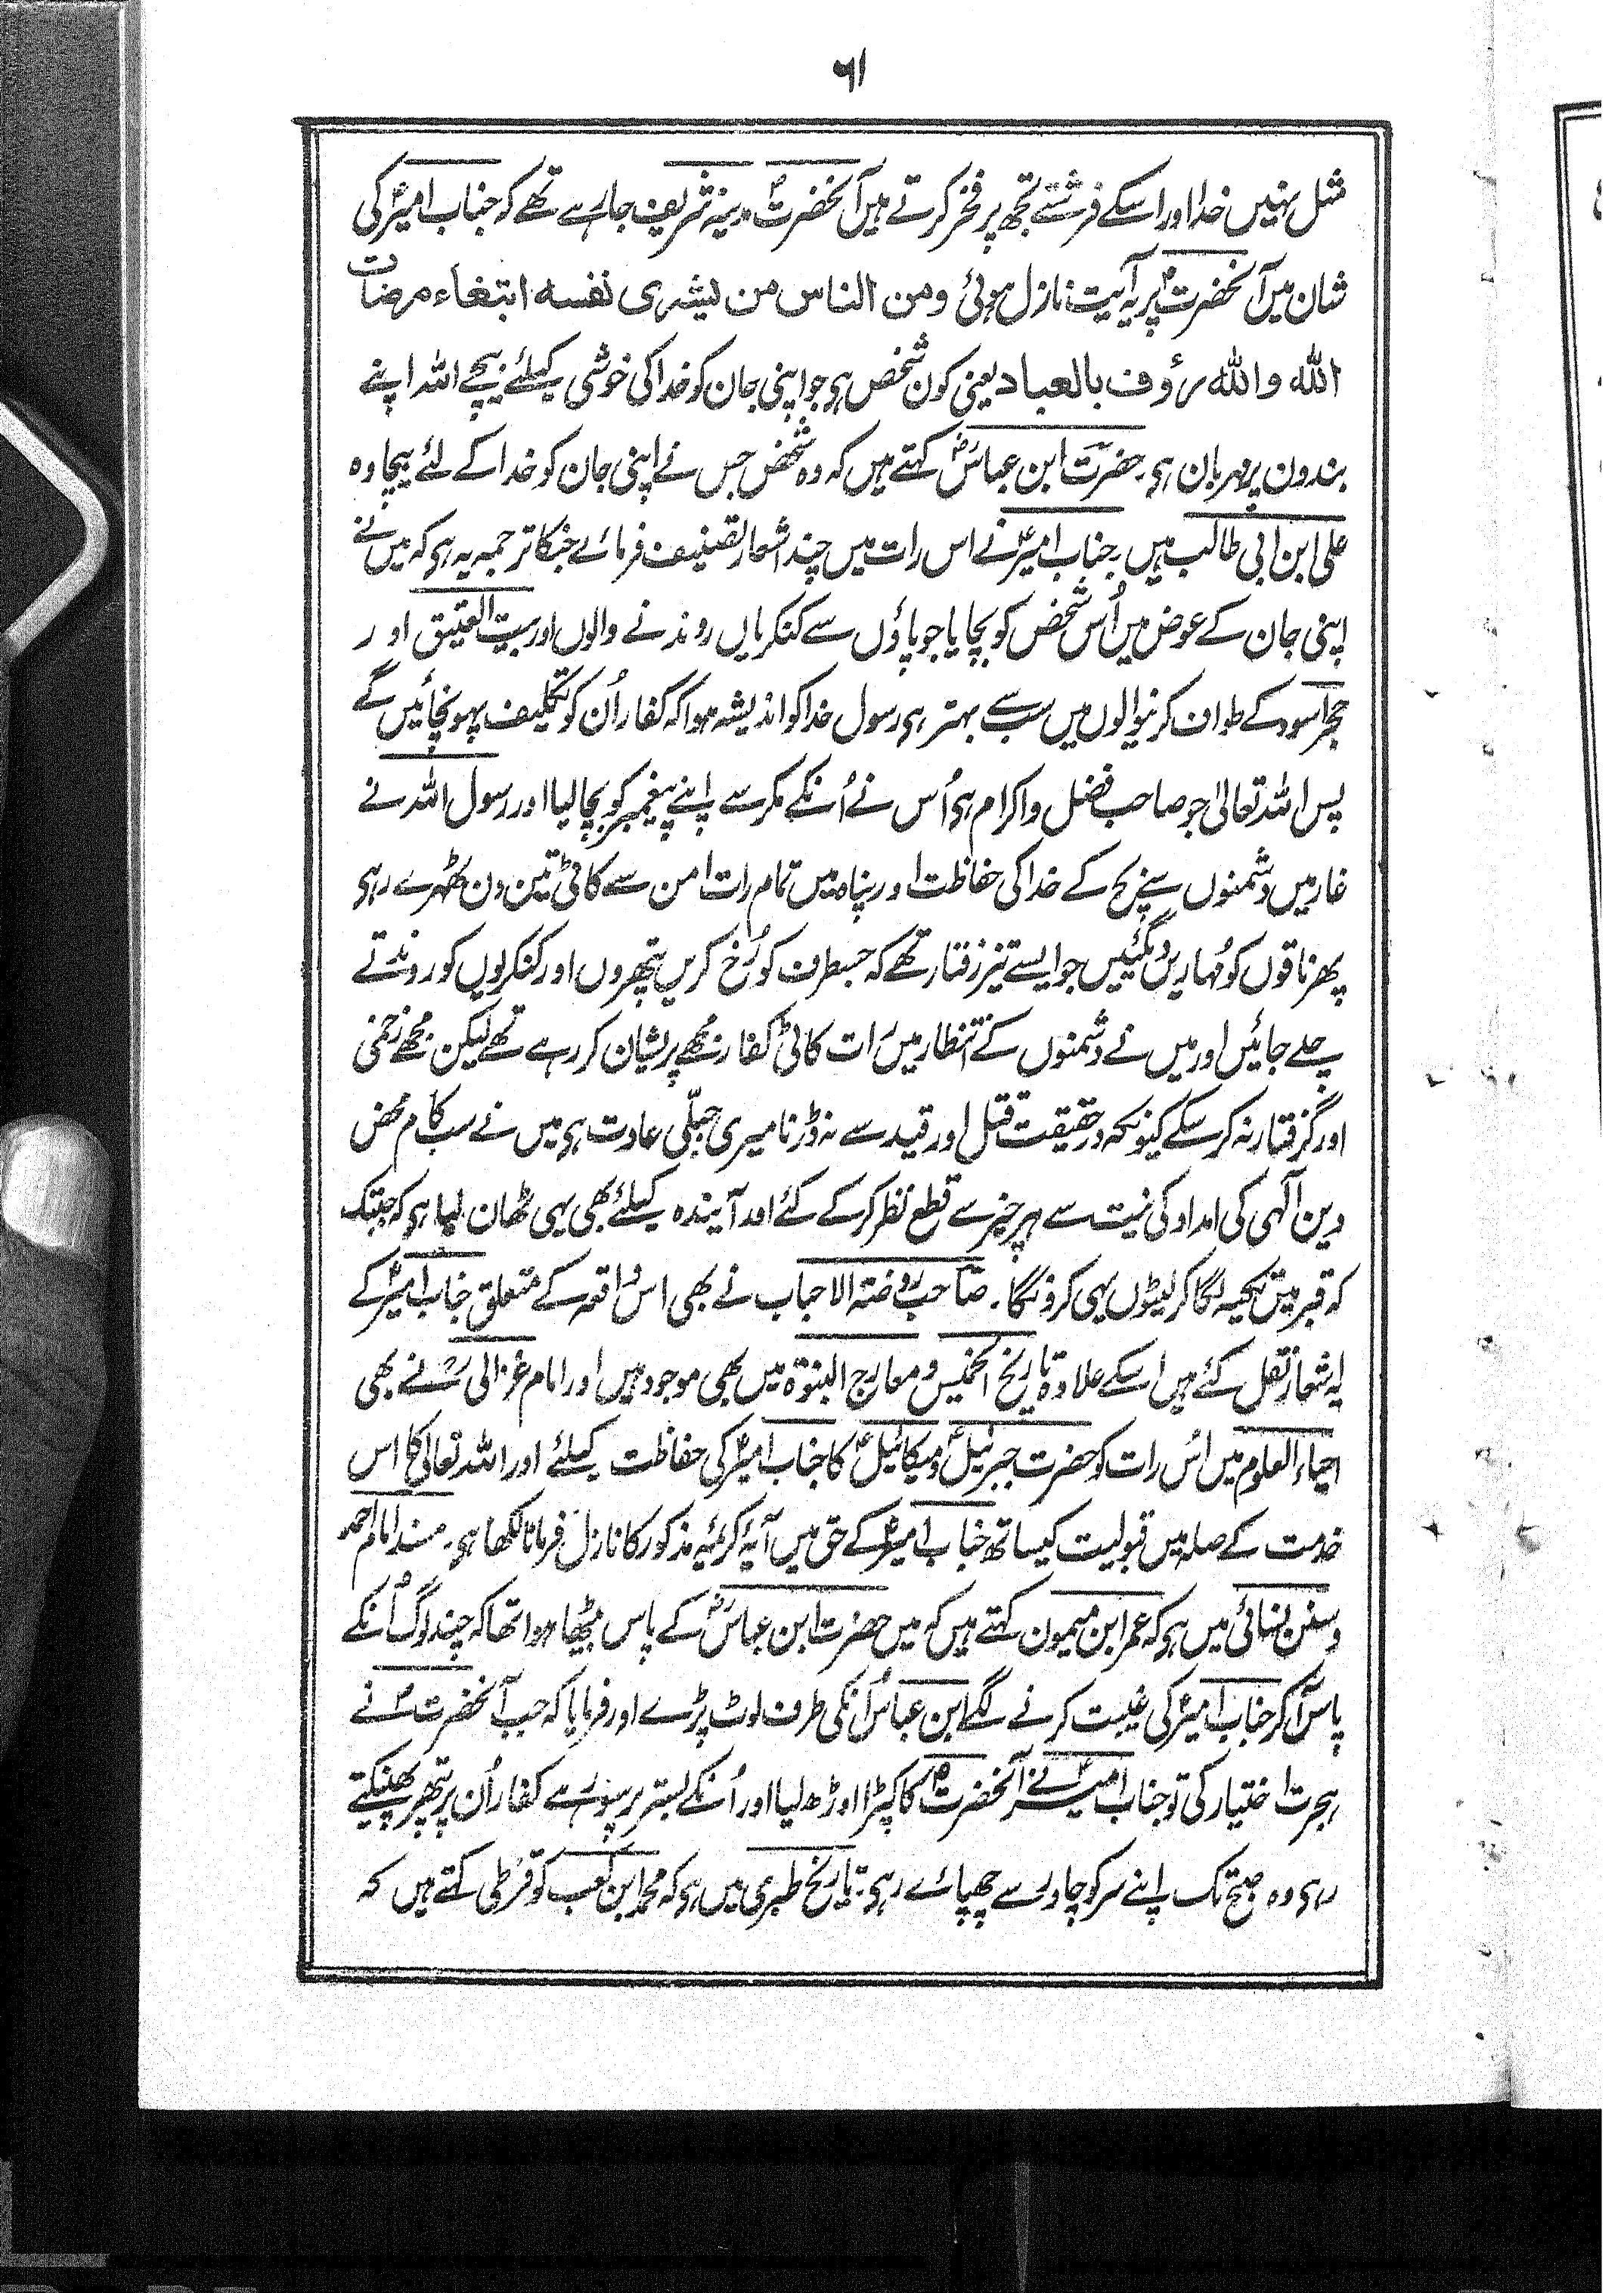 ۶۱
مثل نہیں خدا اور اسکے فرشتے تجھ پر فخر کرتے ہیں آنحضرتؐ مدینہ تشریف جارہے تھے کہ جناب امیرؑ کی
شان میں آنحضرتؐ پر یہ آیت نازل ہوئی ومن الناس من یشری نفسه ابتغاء مرضات
الله والله رؤف بالعباد یعنی کون شخص ہی جو اپنی جان کو خدا کی خوشی کیلئے بیچے اللہ اپنے
بندون پر مہربان ہی۔ حضرت ابن عباسؓ کہتے ہیں کہ وہ شخص جس نے اپنی جان کو خدا کے لئے بیچا وہ
علی ابن ابی طالب ہیں۔ جناب امیرؑ نے اس رات میں چند اشعار تصنیف فرمائے جنکا ترجمہ یہ ہی کہ میں نے
اپنی جان کے عوض میں اُس شخص کو بچایا جو پاؤں سے کنکریاں روندنے والوں اور بیت العتیق او ر
حجر اسود کے طواف کرنیوالوں میں سب سے بہتر ہی رسول خدا کو اندیشہ ہوا کہ کفار اُن کو تکلیف پہونچائیں گے
پس اللہ تعالیٰ جو صاحب فضل و اکرام ہی اُس نے اُنکے مکر سے اپنے پیغمبر کو بچا لیا اور رسول اللہ نے
غار میں دشمنوں سے بچ کے خدا کی حفاظت اور پناہ میں تمام رات امن سے کاٹی تین دن ٹھہرے رہی
پھر ناقوں کو مُہاریں دی گئیں جو ایسے تیز رفتار تھے کہ جسطرف کو رُخ کریں پتھروں اور کنکریوں کو روندتے
چلے جائیں اور میں نے دشمنوں کے انتظار میں رات کاٹی کفار مجھے پریشان کر رہے تھے لیکن مجھے زخمی
اور گرفتار نہ کرسکے کیونکہ درحقیقت قتل اور قید سے نہ ڈرنا میری جبلّی عادت ہی میں نے سب کام محض
دین آلٰہی کی امداد کی نیت سے ہر چیز سے قطع نظر کرکے کئے اور آیندہ کیلئے بھی یہی ٹھان لیا ہی کہ جبتک
کہ قبر میں تکیہ لگا کر لیٹوں یہی کرونگا۔ صاحب روضتہ الاحباب نے بھی اس واقعہ کے متعلق جناب امیرؑ کے
یہ اشعار نقل کئے ہیں اسکے علاوہ تاریخ الخمیس و معارج النبوۃ میں بھی موجود ہیں اور امام غزالیؒ نے بھی
احیاء العلوم میں اُس رات کو حضرت جبرئیلؑ و میکائیلؑ کا جناب امیرؑ کی حفاظت کیلئے اور اللہ تعالیٰ کا اس
خدمت کے صلہ میں قبولیت کیساتھ جناب امیرؑ کے حق میں آیۂ کریمہ مذکور کا نازل فرمانا لکھا ہی۔ مسند امام احمد
و سنن نسائی میں ہی کہ عمر ابن میمون کہتے ہیں کہ میں حضرت ابن عباسؓ کے پاس بیٹھا ہوا تھا کہ چند لوگ اُنکے
پاس آکر جناب امیرؑ کی غیبت کرنے لگے ابن عباسؓ اُنکی طرف لوٹ پڑے اور فرمایا کہ جب آنحضرتؐ نے
ہجرت اختیار کی تو جناب امیرؑ نے آنحضرتؐ کا کپڑا اوڑھ لیا اور اُنکے بستر پر سورہے کفار اُن پر پتھر پھینکتے
رہی وہ صبح تک اپنے سر کو چادر سے چھپائے رہی۔ تاریخ طبری میں ہی کہ محمد ابن کعب کو قرظی کہتے ہیں کہ